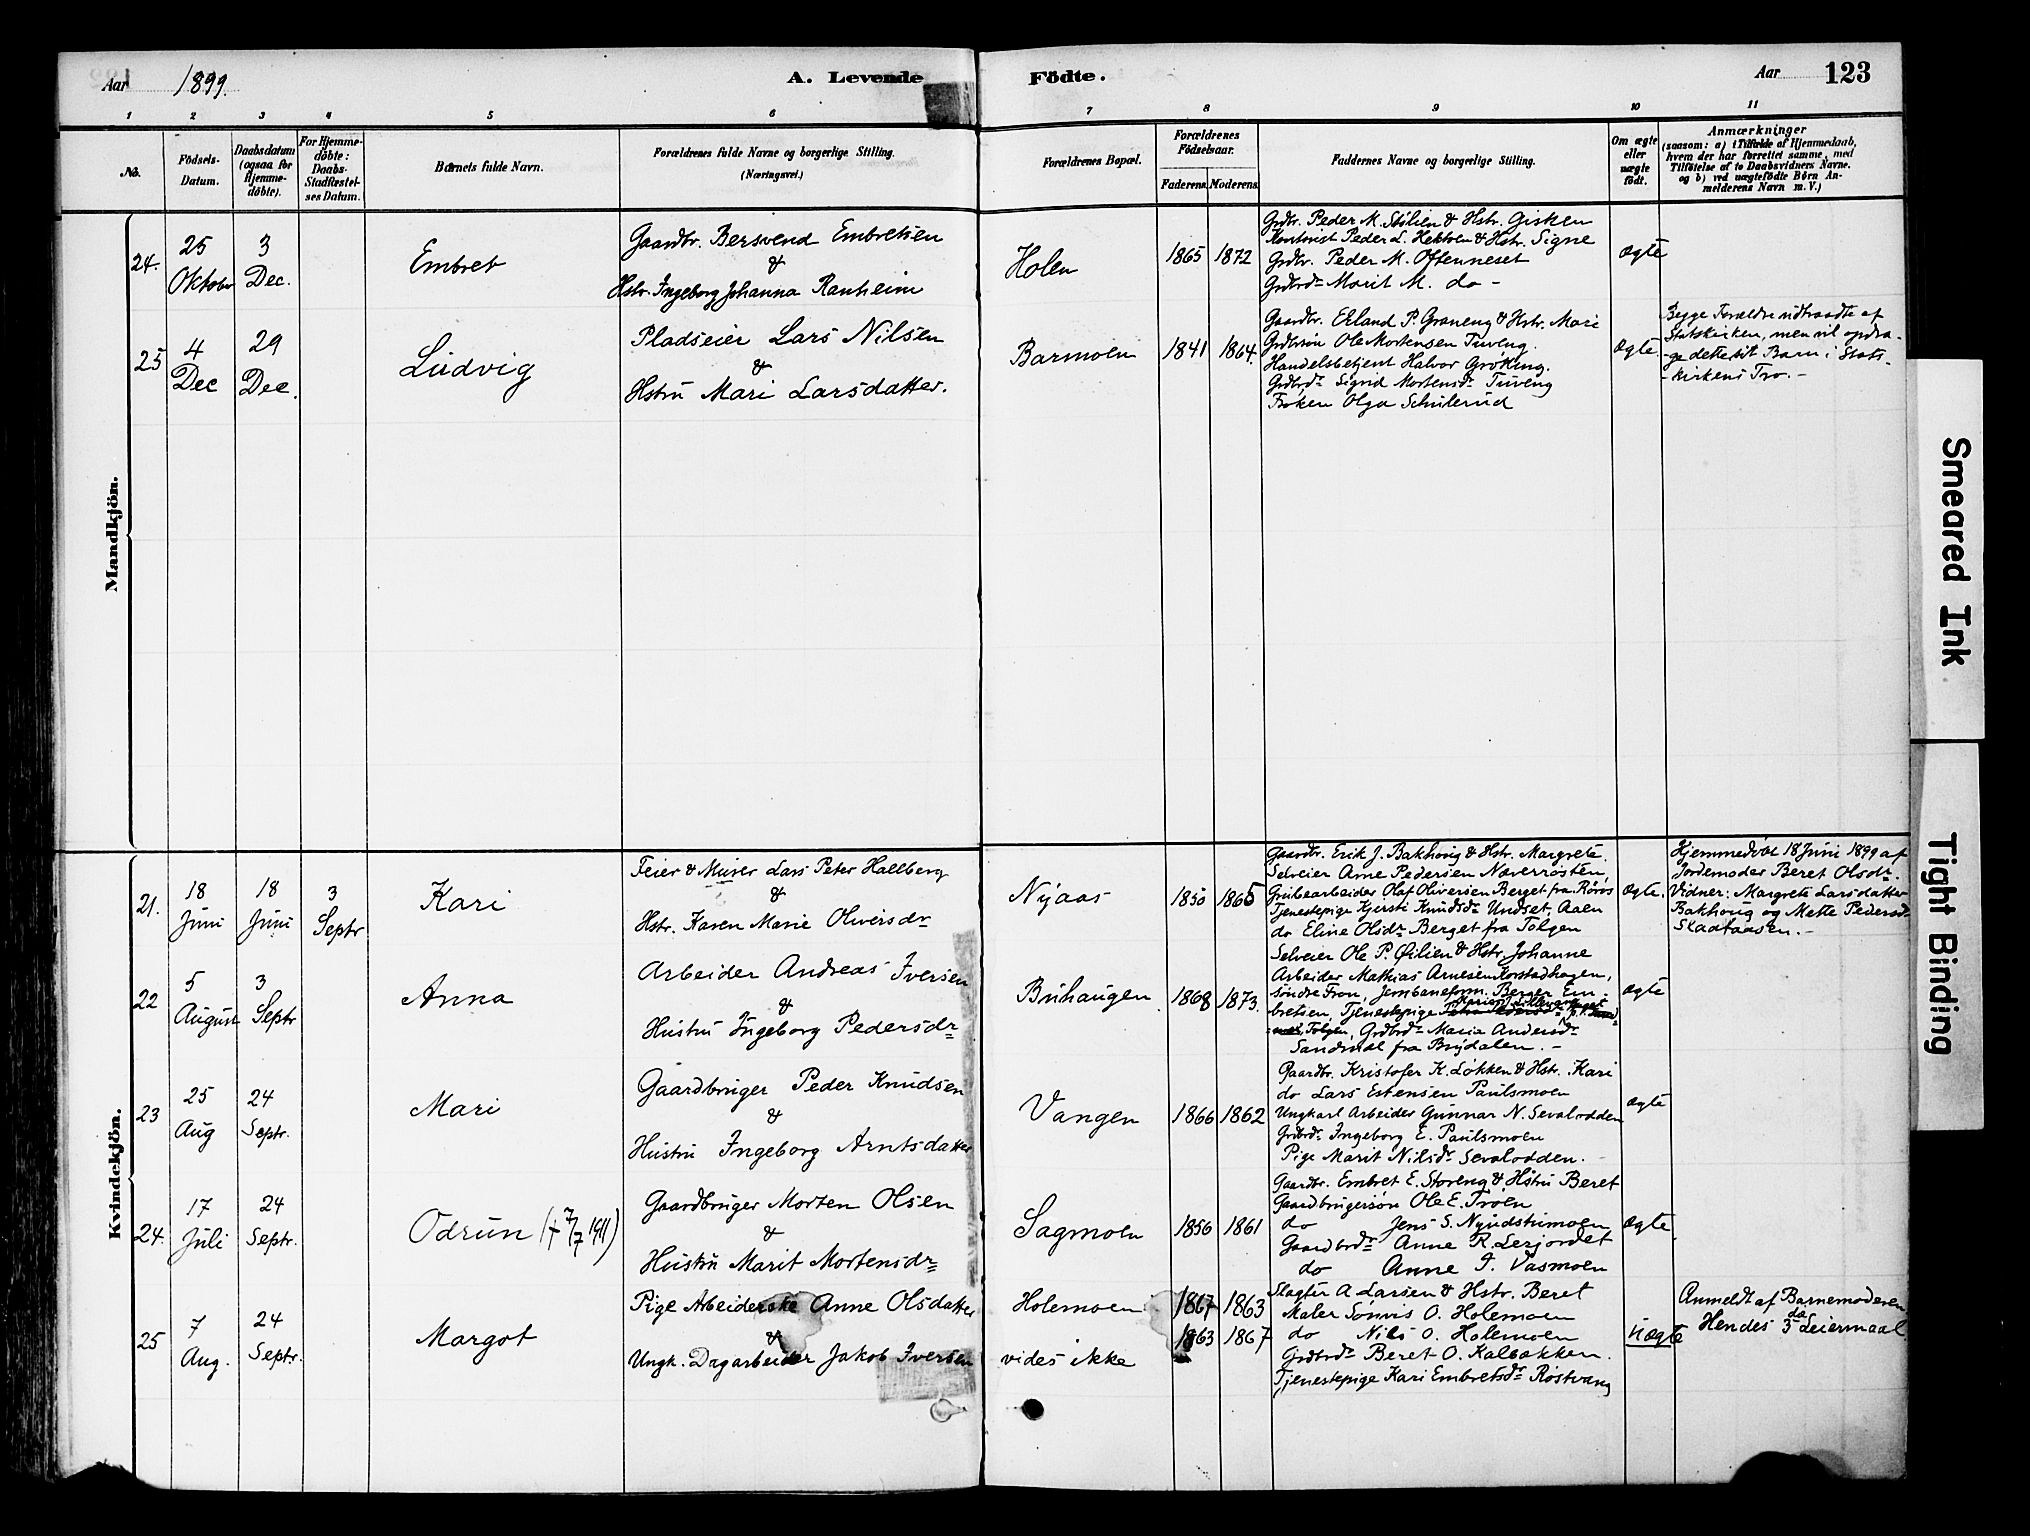 Aar 1899.
A. Levende
Födte.
Aar 123
1 2 3 4 5 6 7 8 9 10 11
No.
Födsels-
Datum.
Daabsdatum
(ogsaa for
Hjemme-
döbte).
For Hjemme-
döbte:
Daabs-
Stadfæstel-
ses Datum.
Barnets fulde Navn.
Forældrenes fulde Navne og borgerlige Stilling.
(Næringsvei.)
Forældrenes Bopæl.
Forældrenes
Födselsaar.
Faderens. Moderens.
Faddernes Navne og borgerlige Stilling.
Om ægte
eller
uægte
födt.
Anmærkninger
(saasom: a) i Tilfælde af Hjemmedaab,
hvem der har forrettet samme, med
Tilföielse af to Daabsvidners Navne.
og b) ved uægtefödte Börn An-
melderens Navn m. V.)
Mandkjön.
24.
25
Oktober
3
Dec.
Embret
Gaardbr. Bersvend Embretsen
&
Hstr. Ingeborg Johanna Ranheim
Holen
1865 1872
Grdbr. Peder M. Stølien & Hstr. Gisken
Kontorist Peder L. Hektoen & Hstr. Signe
Grdbr. Peder M. Oftenneset
Grdbrd. Marit M. do -
Ægte
25
4
Dec
29
Dec.
Ludvig
Pladseier Lars Nilsen
&
Hstru Mari Larsdatter.
Barmoen
1841 1864.
Gaardbr. Erland P. Graneng & Hstr. Mari
Grdbrsøn Ole Mortensen Tuveng.
Handelsbetjent Halvor Grøtting.
Grdbrdr Sigrid Mortensdr Tuveng
Frøken Olga Schulerud
Ægte.
Begge Forældre udtraadte af
Statskirken, men vil opdra-
ge dette sit Barn i Stats-
-kirkens Tro. -
Kvindekjön.
21.
18
Juni
18
Juni
3
Septr
Kari
Feier & Murer Lars Peter Hallberg
&
Hstr. Karen Marie Oliversdr
Nyaas
1850 1865
Gaardbr. Erik J. Bakhoug & Hstr. Margrete.
Selveier Arne Pedersen Nærerrøsten,
Grubearbeider Olaf Oliversen Berget fra Røros
Tjenestepige Kjersti Knudsdr Undset, Aalen
do Eline Olsdr Berget fra Tolgen
Ægte.
Hjemmedøbt 18 Juni 1899 af
Jordemoder Beret Olsdr.
Vidner: Margrete Larsdatter
Bakhoug og Mette Pedersdr
Sladtaasen. -
22
5
August
3
Septr
Anna
Arbeider Andreas Iversen
&
Hustru Ingeborg Pedersdr
Bruhaugen
1868 1873.
Selveier Ole P. Øilien & Hstr. Johanne
Arbeider Mathias Arnesen Korstadhagen,
søndre Fron, Jernbaneform. Berger Em-
bretsen, Tjenestepige
Tolgen, Grdbrdr Maria Andersdr
Sandmæl fra Brydalen. -
Ægte
23
25
Aug
24
Septr.
Mari
Gaardbruger Peder Knudsen
&
Hustru Ingeborg Arntsdatter
Vangen
1866 1862
Gaardbr. Kristofer K. Løkken & Hstr. Kari
do Lars Estensen Paulsmoen
Ungkarl Arbeider Gunnar N. Sevalodden
Grdbrdr Ingeborg E. Paulsmoen
Pige Marit Nilsdr Sevalodden.
Ægte
24.
17
Juli
24
Septr.
Odrun († 7/7 1911)
Gaardbruger Morten Olsen
&
Hustru Marit Mortensdr
Sagmoen
1856 1861
Gaardbr. Embret E. Storeng & Hstru Beret
Gaardbrugersøn Ole E. Troen
do Jens S. Nyudstumoen
Gaardbrdr Anne R. Lerjordet
do Anne I. Vasmoen
Ægte.
25
7
Aug.
24
Septr.
Margot
Pige Arbeiderske Anne Olsdatter
&
Ungk. Dagarbeider Jakob Iversen
Holemoen
vides ikke
1867 1863
1863 1867
Slagter A Larsen & Hstr. Beret
Maler Sønvis O. Holemoen
do Nils O. Holemoen
Grdbrdr Beret O. Kalbækken.
Tjenestepige Kari Embretsdr Røstvang
Uægte
Anmeldt af Barnemoderen
Hendes 3die Leiermaal.
Smeared Ink
Tight Binding